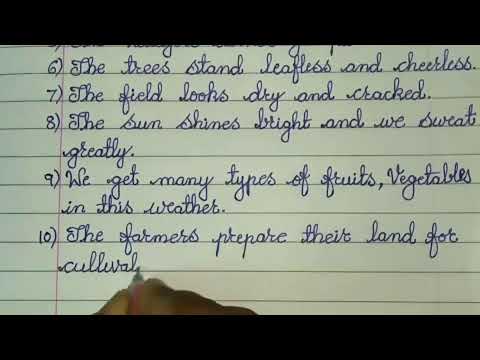 6) The trees stand leafless and cheerless.
7) The field looks dry and cracked.
8) The sun shines bright and we sweat
greatly.
9) We get many types of fruits, Vegetables
in this weather.
10) The farmers prepare their land for
cultivat